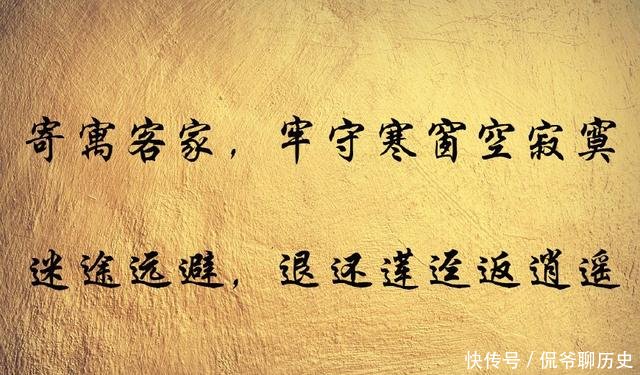 寄寓客家，牢守寒窗空寂寞
迷途远避，退还莲迳返逍遥
快传号 / 侃爷聊历史